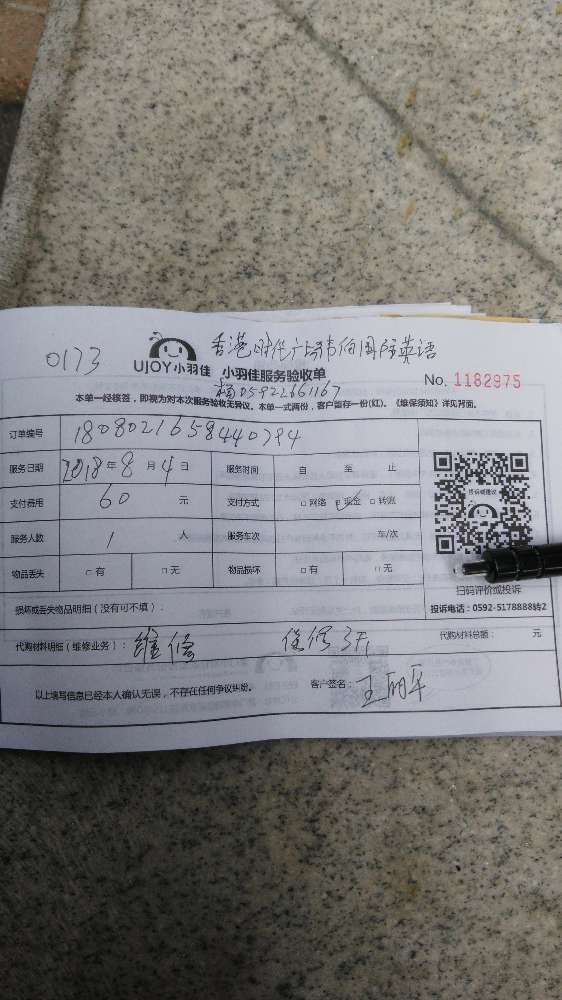 0173
UJOY小羽佳
香港时代广场韦伯国际英语
小羽佳服务验收单
杨05922661167
No. 1182975
本单一经核签，即视为对本次服务验收无异议。本单一式两份，客户留存一份(红)。《维保须知》详见背面。
订单编号 1808021658440794
服务日期 2018年8月4日 服务时间 自 至 止
支付费用 60 元 支付方式 □网络 ☑现金 □转账
服务人数 1 人 服务车次 车/次
物品丢失 □有 □无 物品损坏 □有 □无
投诉或建议
扫码评价或投诉
投诉电话：0592-5178888转2
损坏或丢失物品明细（没有可不填）：
代购材料明细（维修业务）： 维修 保修3天 代购材料总额： 元
以上填写信息已经本人确认无误，不存在任何争议纠纷。 客户签名： 王丽平